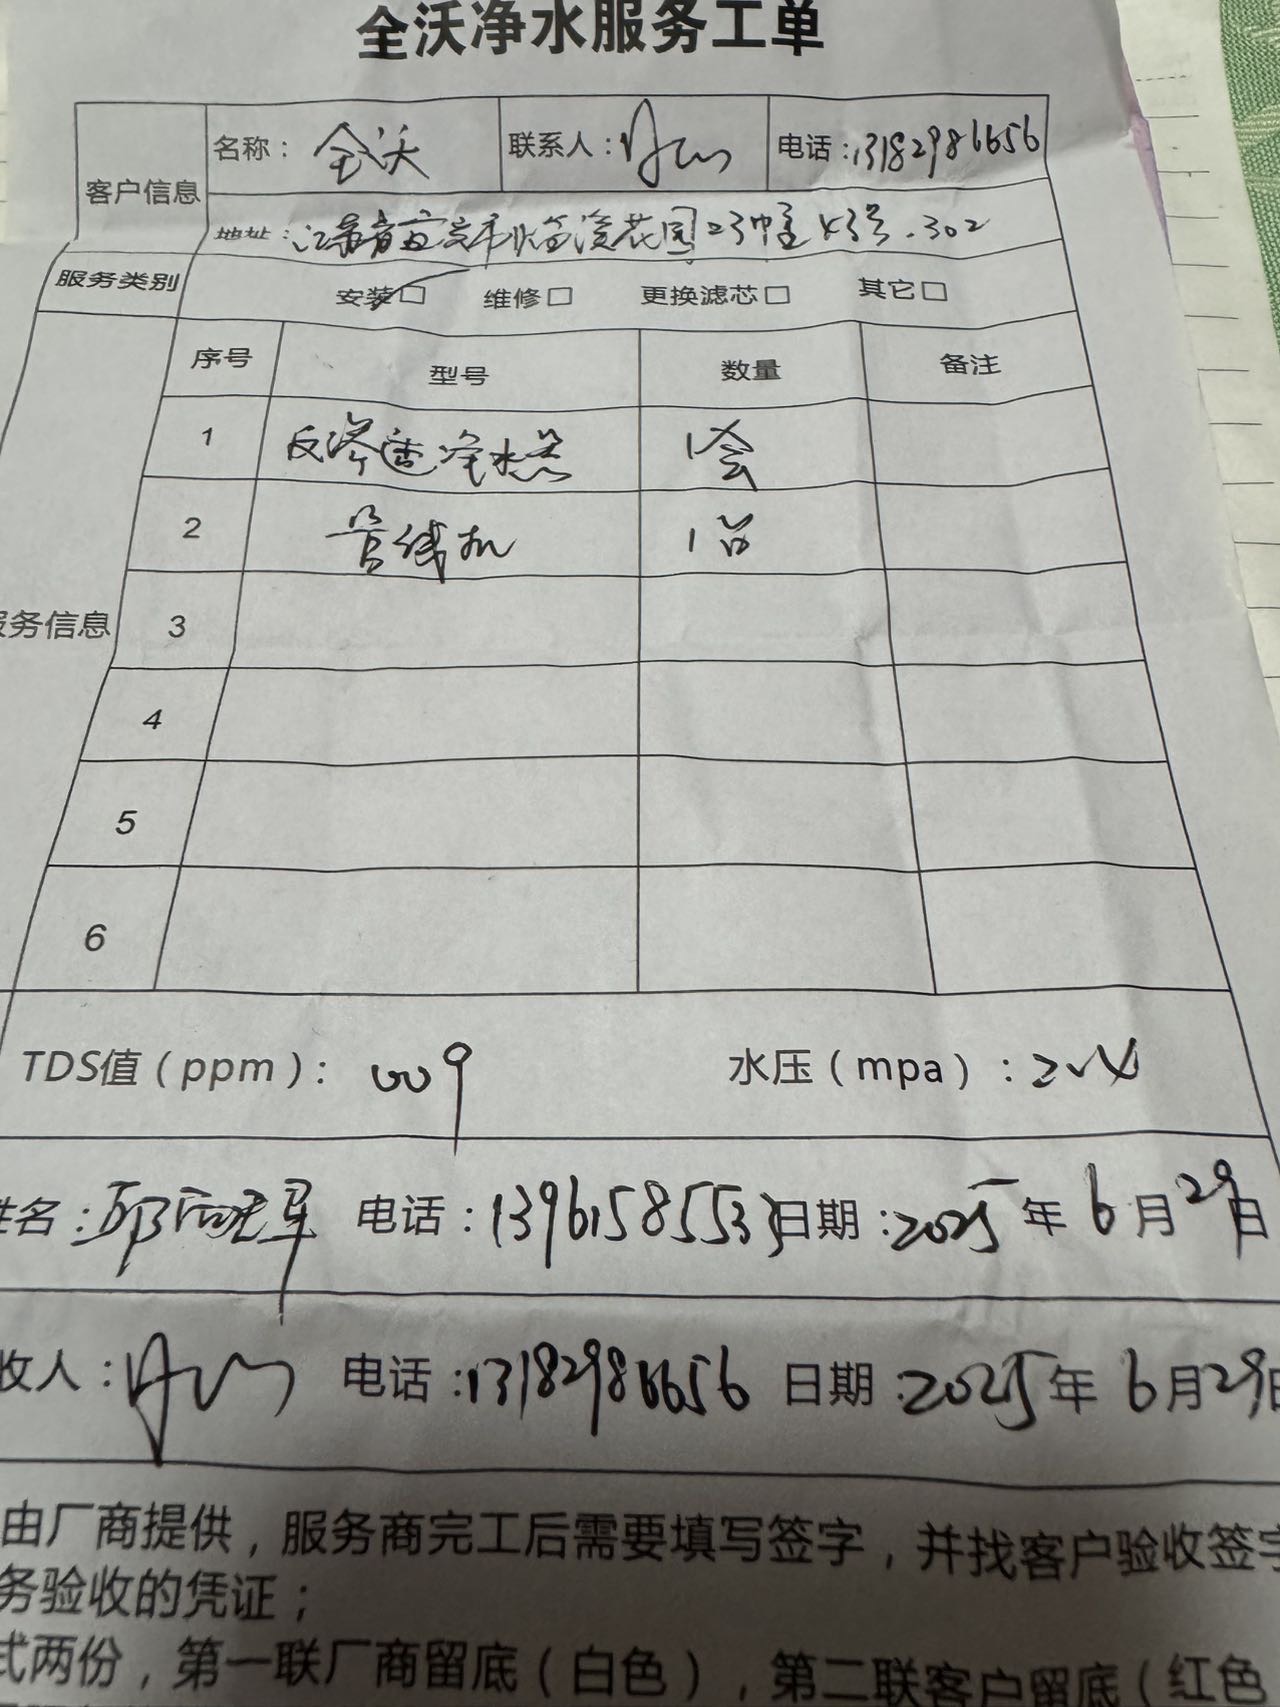 全沃净水服务工单
客户信息 名称： 全沃 联系人： 电话：13182986656
地址：江苏省宜兴市 花园23幢43号.302
服务类别 安装☑ 维修□ 更换滤芯□ 其它□
服务信息 序号 型号 数量 备注
1 反渗透净水器 1台
2 管线机 1台
3
4
5
6
TDS值（ppm）：009 水压（mpa）：
姓名： 电话：13961585533 日期：2025年6月29日
收人： 电话：13182986656 日期：2025年6月29日
由厂商提供，服务商完工后需要填写签字，并找客户验收签字
务验收的凭证；
式两份，第一联厂商留底（白色），第二联客户留底（红色